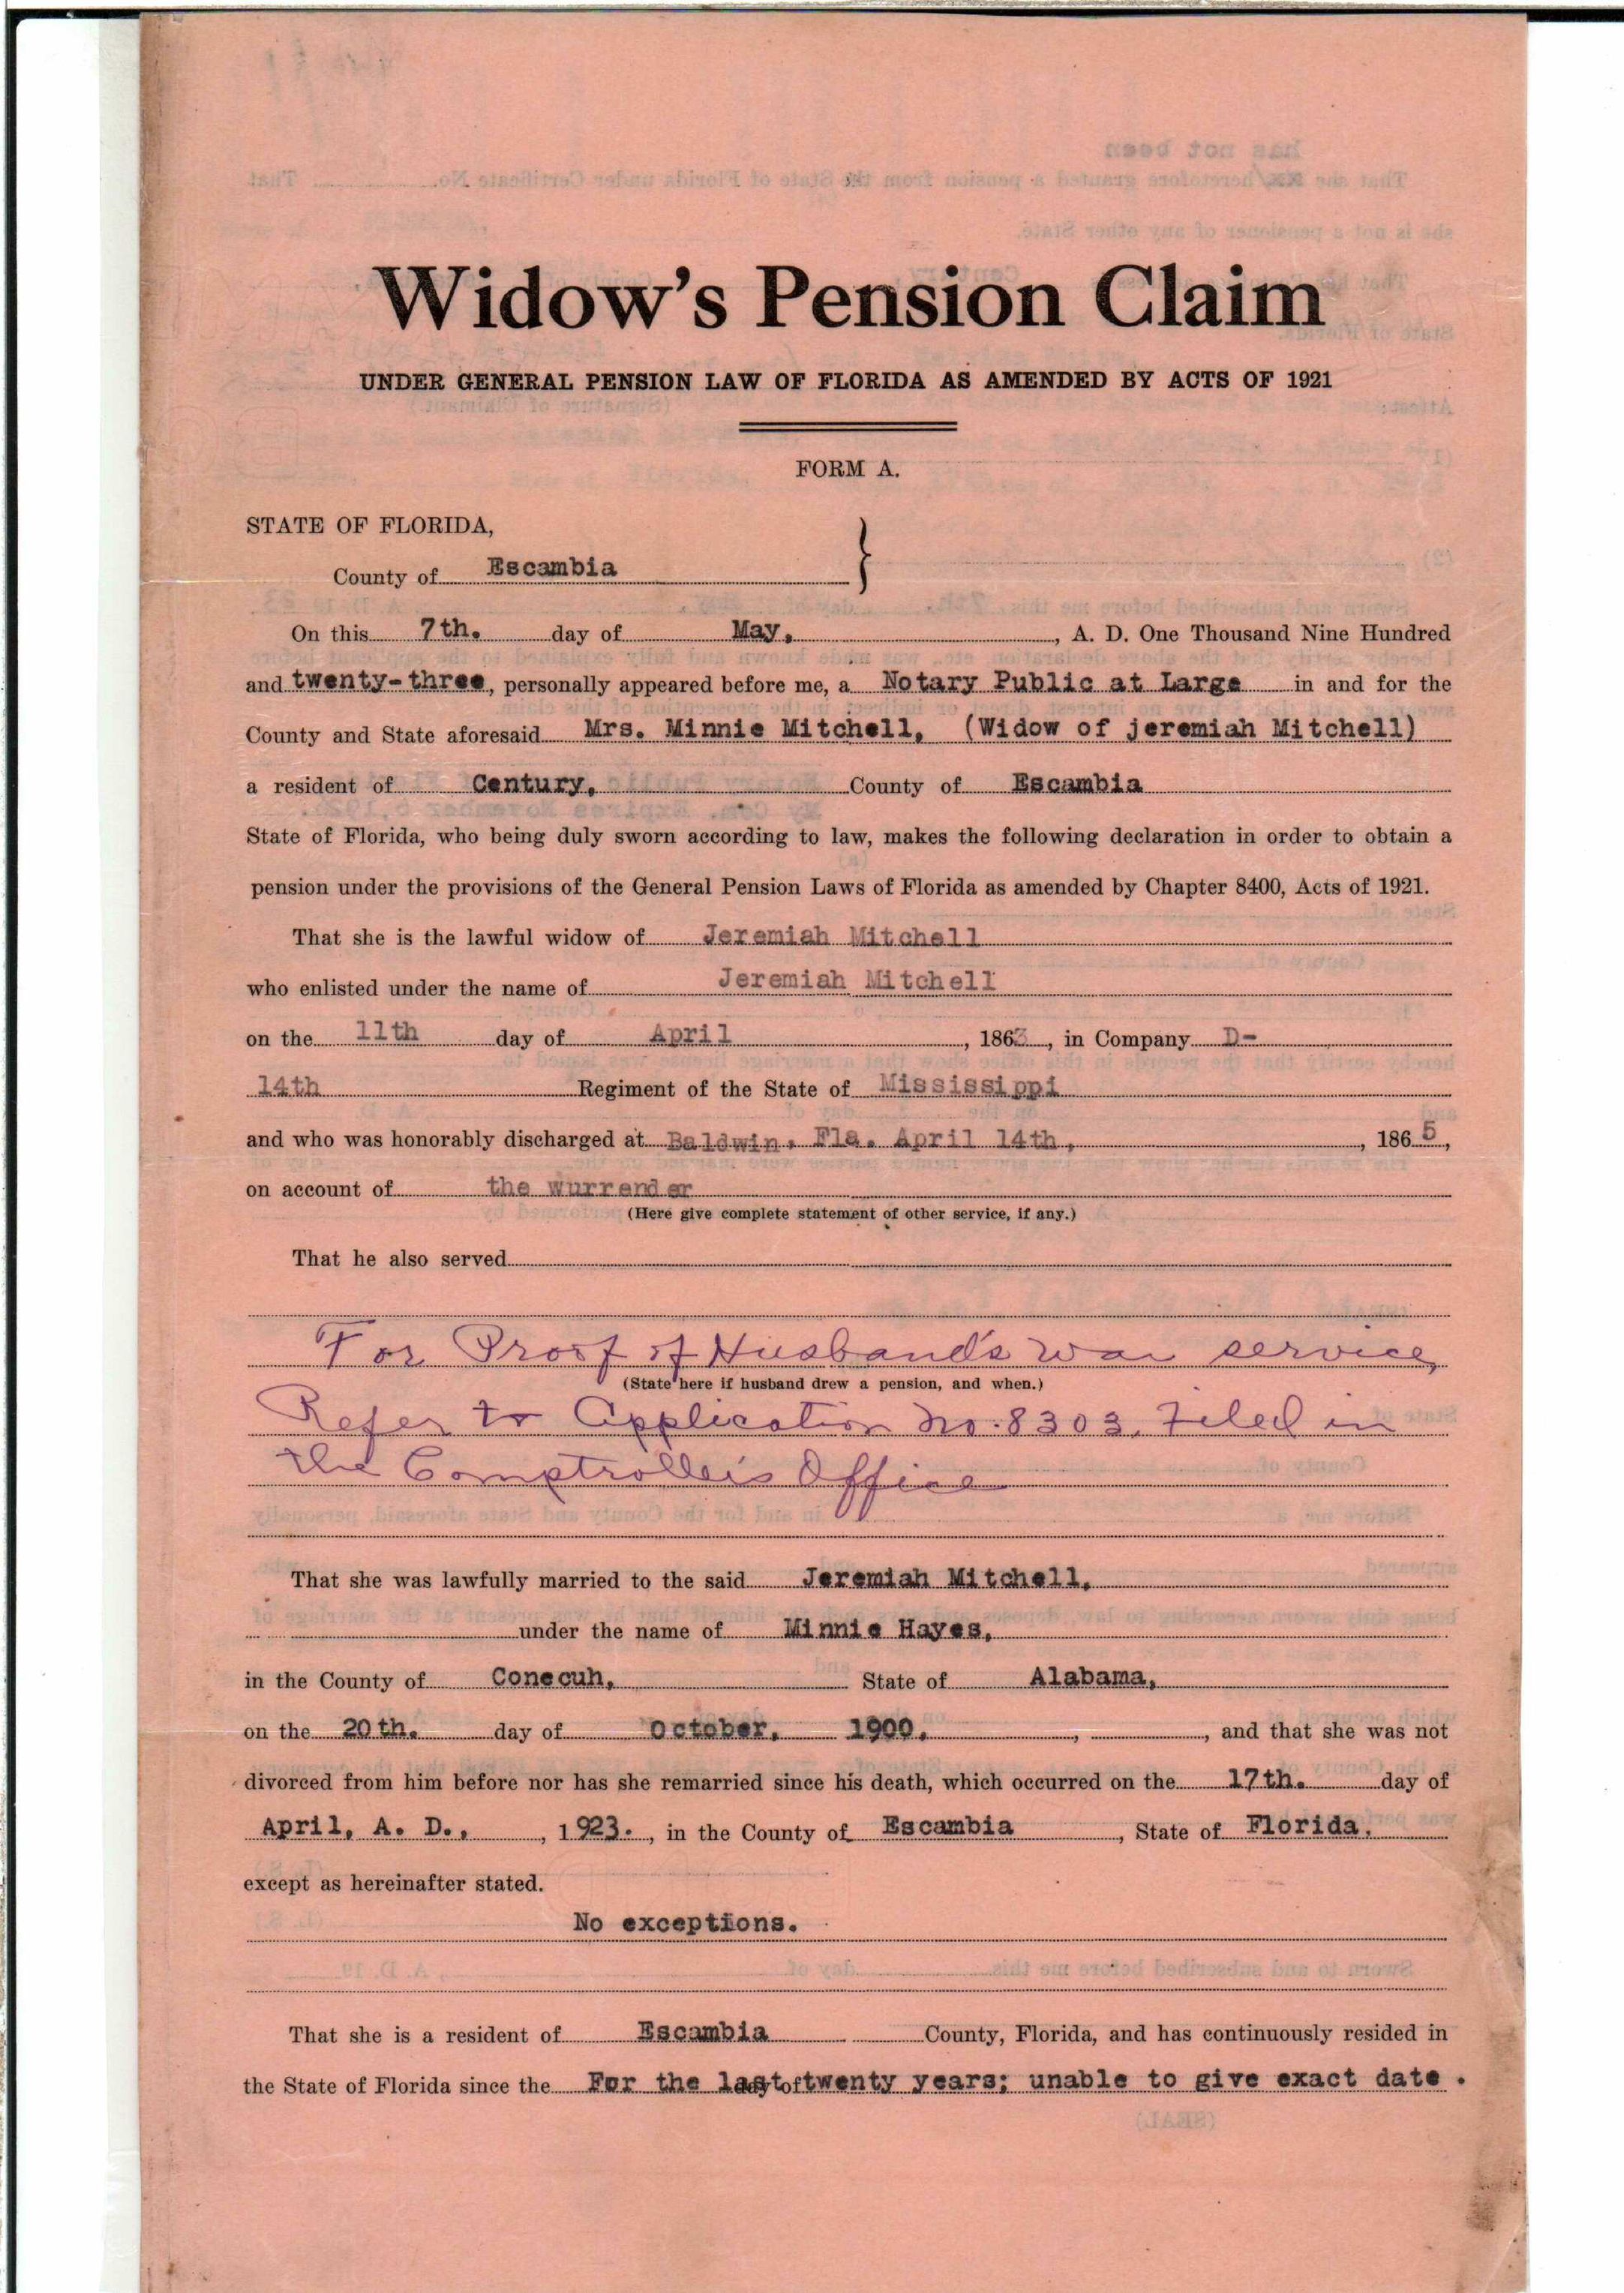 Widow's Pension Claim
UNDER GENERAL PENSION LAW OF FLORIDA AS AMENDED BY ACTS OF 1921
FORM A.
STATE OF FLORIDA,
County of Escambia
On this 7th. day of May, , A. D. One Thousand Nine Hundred
and twenty-three, personally appeared before me, a Notary Public at Large in and for the
County and State aforesaid Mrs. Minnie Mitchell, (Widow of jeremiah Mitchell)
a resident of Century, County of Escambia
State of Florida, who being duly sworn according to law, makes the following declaration in order to obtain a
pension under the provisions of the General Pension Laws of Florida as amended by Chapter 8400, Acts of 1921.
That she is the lawful widow of Jeremiah Mitchell
who enlisted under the name of Jeremiah Mitchell
on the 11th day of April , 1863, in Company D-
14th Regiment of the State of Mississippi
and who was honorably discharged at Baldwin, Fla. April 14th, , 1865,
on account of the wurrender
(Here give complete statement of other service, if any.)
That he also served
For Proof of Husband's war service,
(State here if husband drew a pension, and when.)
Refer to Application No. 8303, Filed in
the Comptroller's Office
That she was lawfully married to the said Jeremiah Mitchell,
under the name of Minnie Hayes,
in the County of Conecuh, State of Alabama,
on the 20th. day of October, 1900, , , and that she was not
divorced from him before nor has she remarried since his death, which occurred on the 17th. day of
April, A. D., , 1923. , in the County of Escambia , State of Florida,
except as hereinafter stated.
No exceptions.
That she is a resident of Escambia County, Florida, and has continuously resided in
the State of Florida since the For the last twenty years; unable to give exact date .